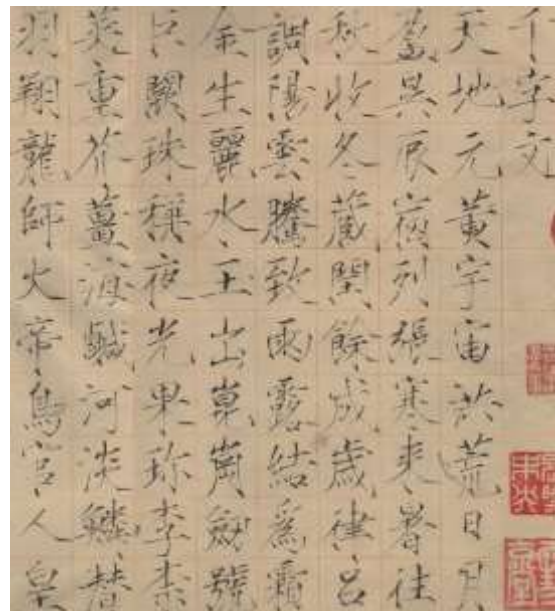 千字文
天地元黃宇宙洪荒日月
盈昃辰宿列張寒来暑往
秋收冬藏閏餘成歲律呂
調陽雲騰致雨露結爲霜
金生麗水玉出崑崗劒號
巨闕珠稱夜光果珍李柰
菜重芥薑海鹹河淡鱗潛
羽翔龍師火帝鳥官人皇